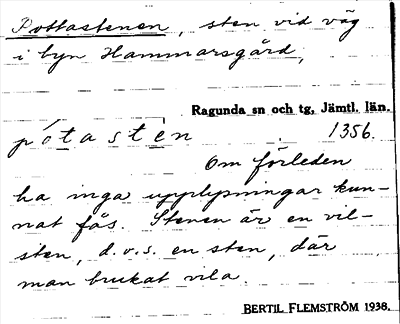 Pottastenen, sten vid väg
i byn Hammarsgård,
Ragunda sn och tg, Jämtl. län.
pòtastèn 1356.
Om förleden
ha inga upplysningar kun-
nat fås. Stenen är en vil-
sten, d.v.s. en sten, där
man brukat vila.
BERTIL FLEMSTRÖM 1938.